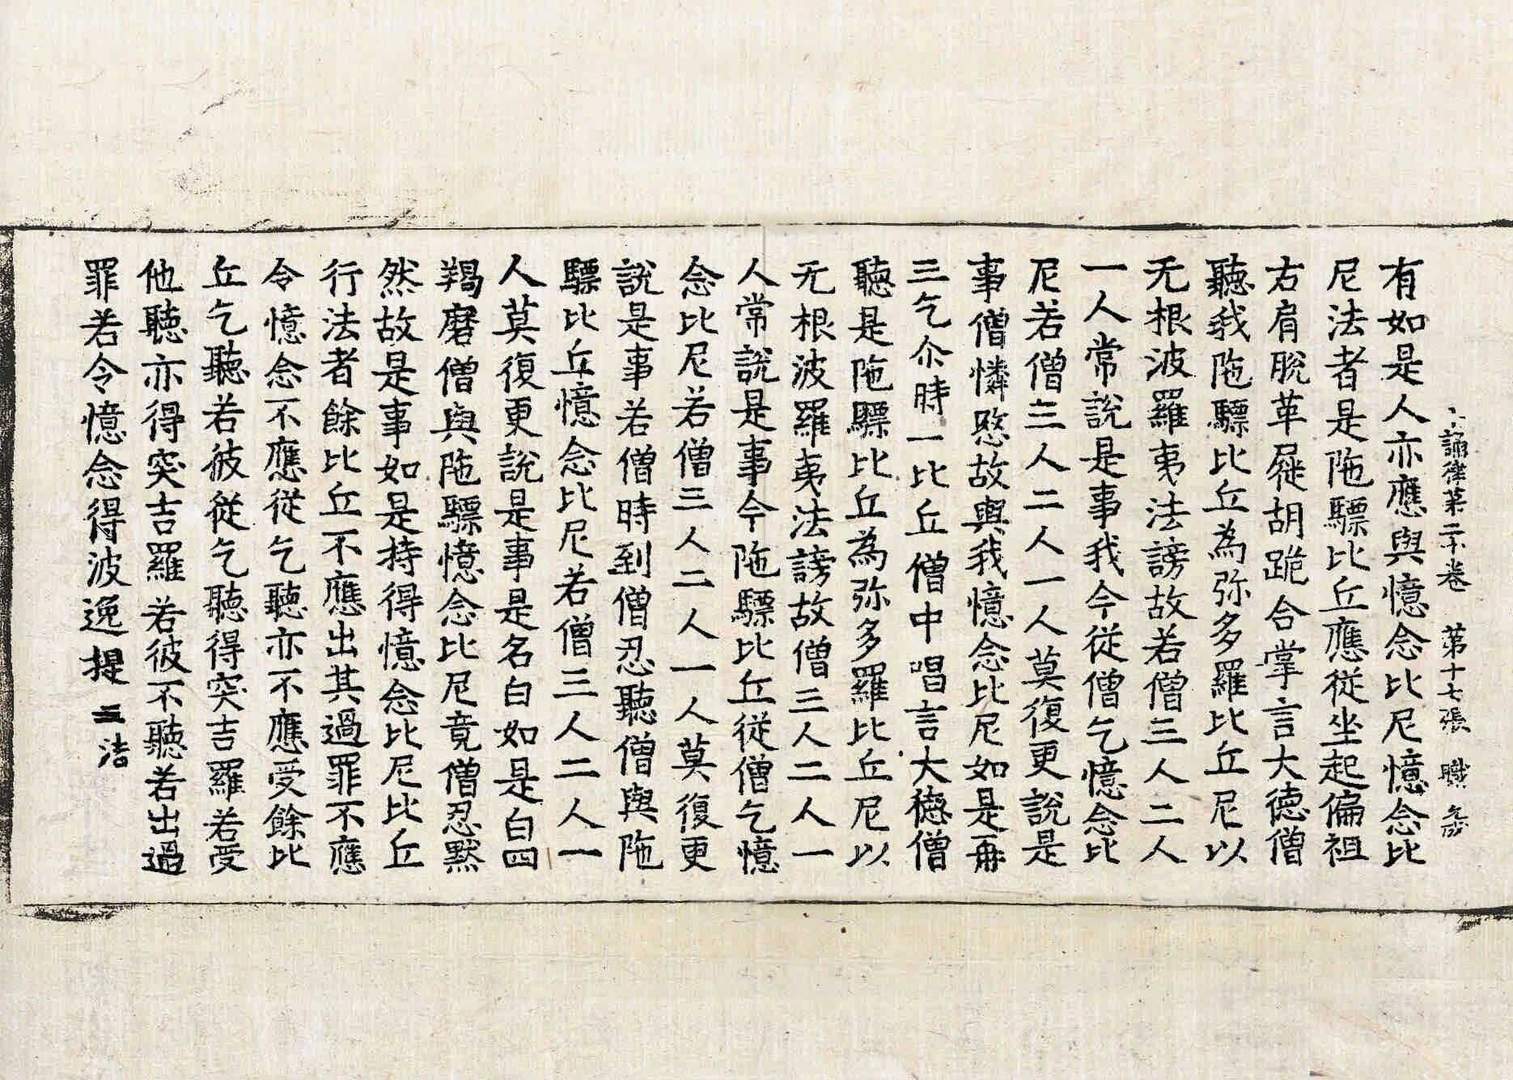 十誦律第二十卷　第十七張　職
有如是人亦應與憶念比尼憶念比
尼法者是陁驃比丘應從坐起偏袒
右肩脫革屣胡跪合掌言大德僧
聽我陁驃比丘為弥多羅比丘尼以
无根波羅夷法謗故若僧三人二人
一人常說是事我今從僧乞憶念比
尼若僧三人二人一人莫復更說是
事僧憐愍故與我憶念比尼如是再
三乞尒時一比丘僧中唱言大德僧
聽是陁驃比丘為弥多羅比丘尼以
无根波羅夷法謗故僧三人二人一
人常說是事今陁驃比丘從僧乞憶
念比尼若僧三人二人一人莫復更
說是事若僧時到僧忍聽僧與陁
驃比丘憶念比尼若僧三人二人一
人莫復更說是事是名白如是白四
羯磨僧與陁驃憶念比尼竟僧忍黙
然故是事如是持得憶念比尼比丘
行法者餘比丘不應出其過罪不應
令憶念不應從乞聽亦不應受餘比
丘乞聽若彼從乞聽得突吉羅若受
他聽亦得突吉羅若彼不聽若出過
罪若令憶念得波逸提 三法